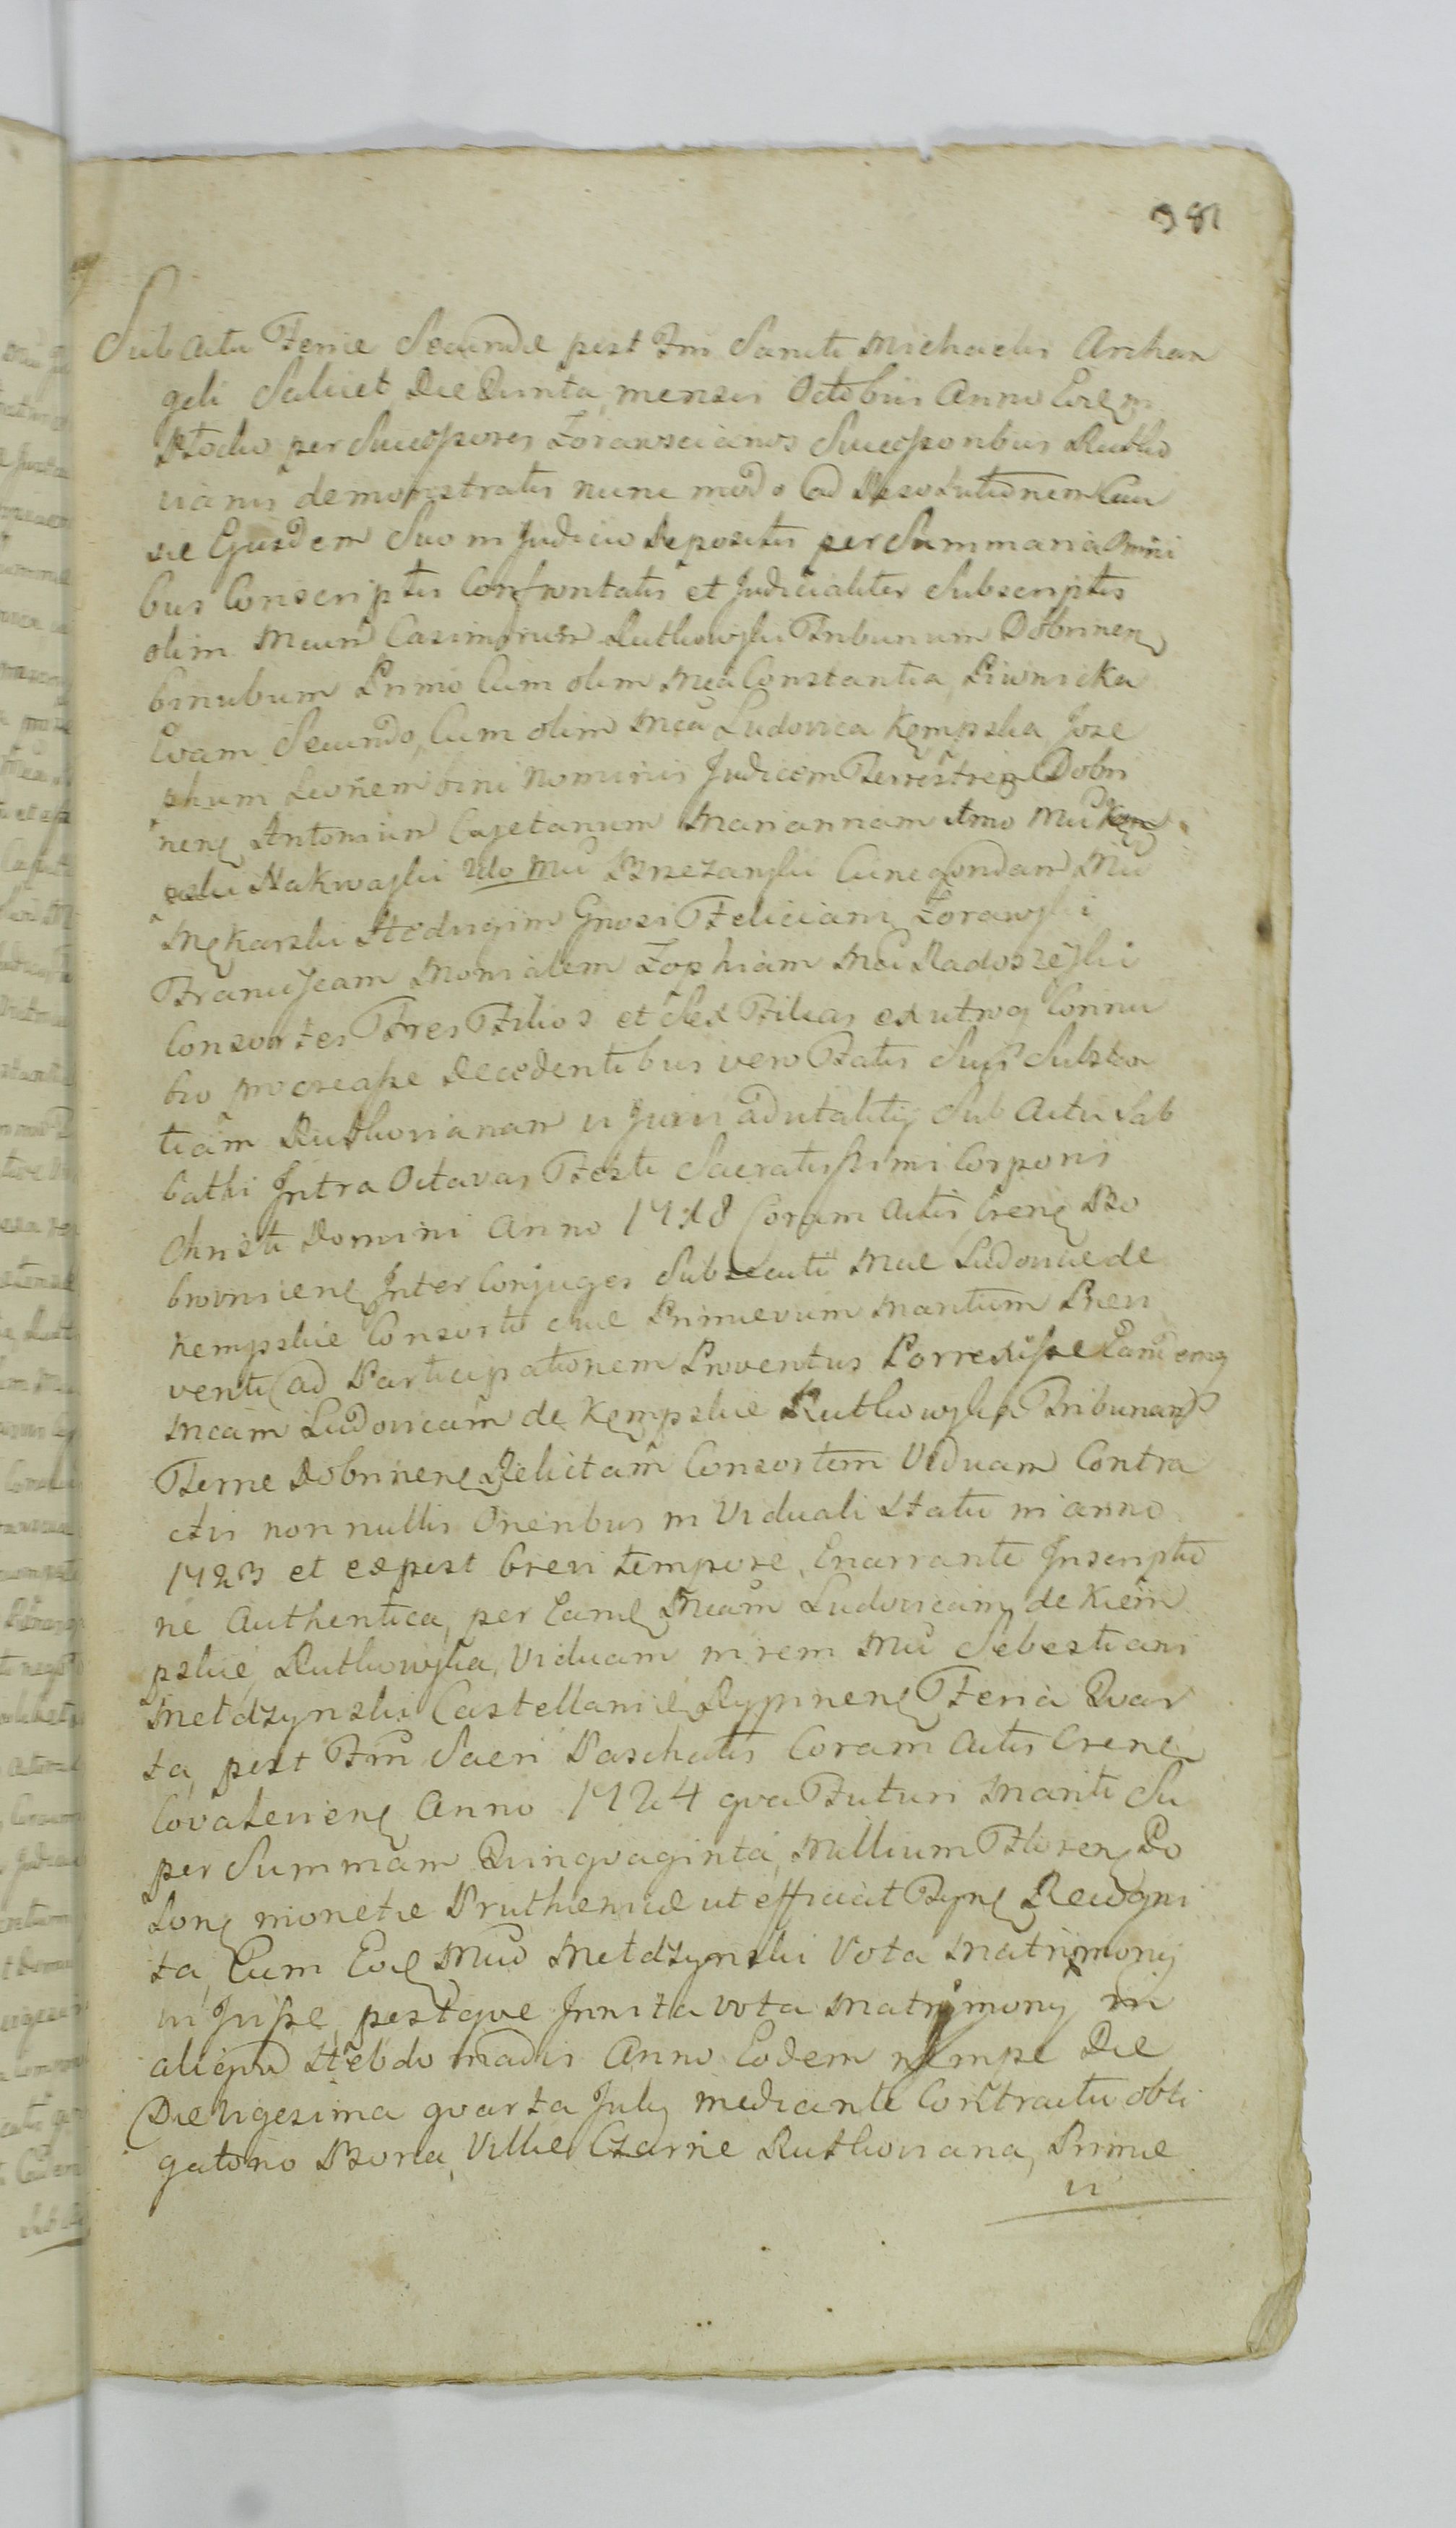 381
Sub Actu Feriæ Secundæ post Fm̃ Sancti Michaelis Archan
geli Salicet Die Quinta mensis Octobris Anno Eodem
per Successores Zorawscianos Successoribus Rutko
vianis demonstratis nunc modo ad Resolutionem Cau
sæ Ejusdem Suo in Judicio Depositis per Summaria Omni
bus Conscriptis Confrontatis et Judicialiter Subscriptis
olim Mcum Casimirum Rutkowski Tribunum Dobrinen
binubum Primo Cum olim Mca Constantia Piwnicka
Evam Secundo Cum olim Mca Ludovica Kempska Jose
phum Leonem bini Nominis Judicem Terrestrem Dobri
nen Antonium Cajetanum Mariannam imo Mci
Nakwaski 2do Mci Brzezanski Cunegondam Mci
Mękarski Hedvigim Gnosi Feliciani Zorawski
Franciscam Monialem Zophiam Mci Radoszeyski
Consortes Tres Filios et Sex Filias ex utroq Connu
bio procreasse Decedentibus vero Fatis Suis Substan
tiam Rutkovianam vi Juris advitalitij Sub Actu Sab
bathi Intra Octavas Festi Sacratissimi Corporis
Christi Domini Anno 1718 Coram Actis Cren Bo
brovnicen Inter Conjuges Subsecuti Mcæ Ludovicæ de
Kempskie Consorti suæ Primevum Maritum Præn
venti ad Participationem Proventus Porrexisse Eandemq
Mcam Ludovicam de Kempskie Rutkowska Tribunam
Terræ Dobrinen Relictam Consortem Viduam Contra
ctis non nullis Oneribus in Viduali Statu in anno
1723 et ex post brevi tempore Enarrante Inscriptio
ne Authentica per Eand Mcam Ludovicam de Kiem
pskie Rutkowska Viduam in rem Mci Sebestiani
Metdzynski Castellani Rypinen Feria Quar
ta post Fm̃ Sacri Paschatis Coram Actis Cren
Covalevien Anno 1724 qva Futuri Mariti Su
per Summam Quinqvaginta Millium Floren Po
lon monetæ Pruthenicæ ut efficiat Recogni
ta Cum Eod Mco Metdzynski Vota Matrimonij
in Jnisse postqve Innita vota Matrimonij in
aliqvod Hebdomadis Anno Eodem nempe Die
Die Vigesima qvarta Julij mediante Contractu obli
gatorio Bona Villæ Czarne Rutkoviana Primæ
vi